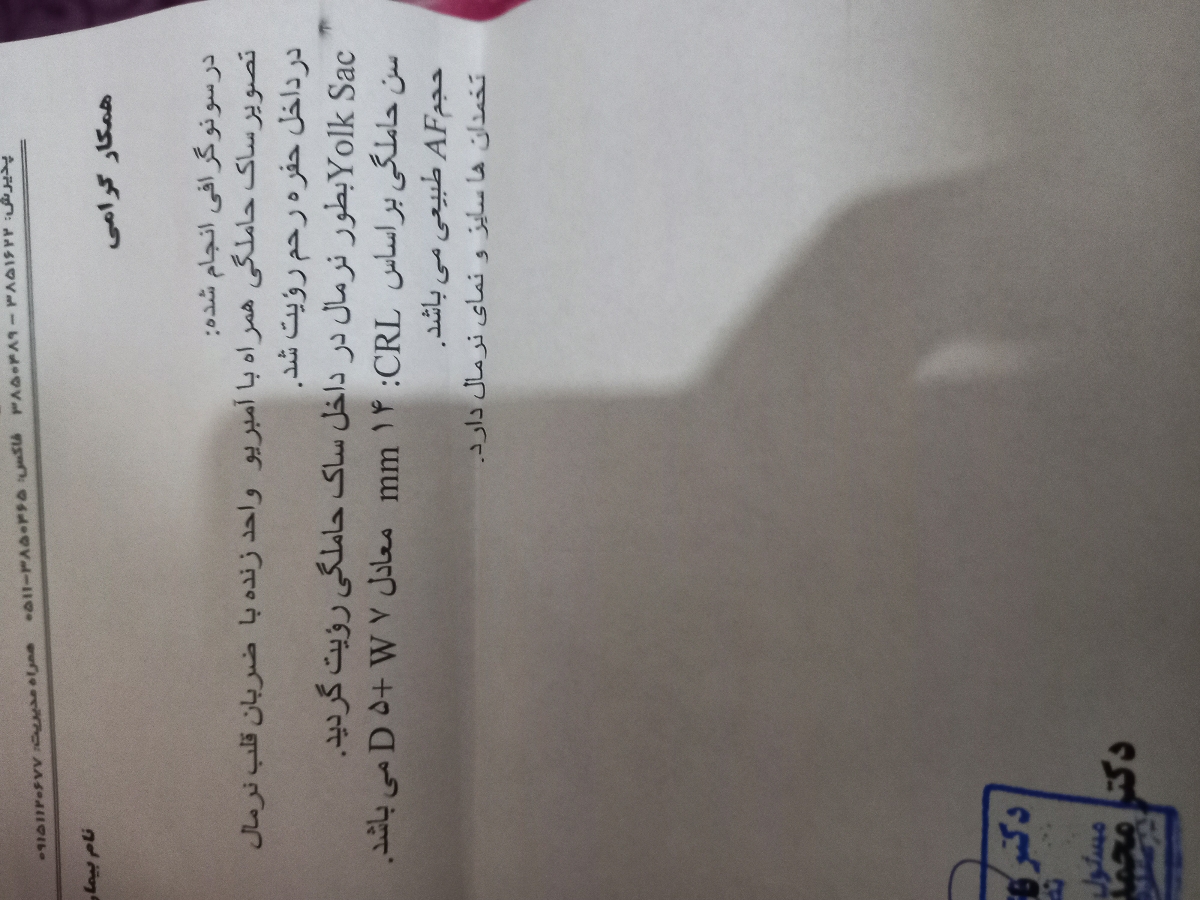 پذیرش: ۳۸۵۱۶۲۲ - ۳۸۵۰۳۸۹ فاکس: ۳۸۵۰۳۶۵-۰۵۱۱ همراه مدیریت: ۰۹۱۵۱۱۲۰۶۷۷
نام بیمار
همکار گرامی
در سونوگرافی انجام شده:
تصویر ساک حاملگی همراه با آمبریو واحد زنده با ضربان قلب نرمال
در داخل حفره رحم رؤیت شد.
Yolk Sac بطور نرمال در داخل ساک حاملگی رؤیت گردید.
سن حاملگی براساس CRL: ۱۴ mm معادل ۷ W +۵ D می باشد.
حجم AF طبیعی می باشد.
تخمدان ها سایز و نمای نرمال دارد.
دکتر
مسئول
دکتر